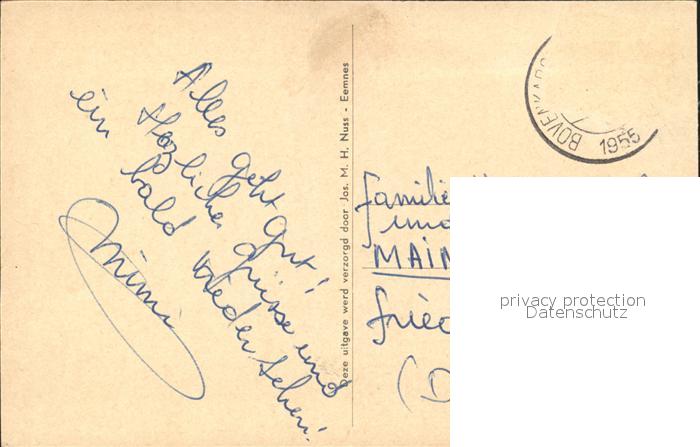 Alles geht gut!
Herzliche Grüsse und
ein bald wiedersehen!
Mimi
Deze uitgave werd verzorgd door Jos. M. H. Nuss - Eemnes
1955
Familie
und
privacy protection
Datenschutz